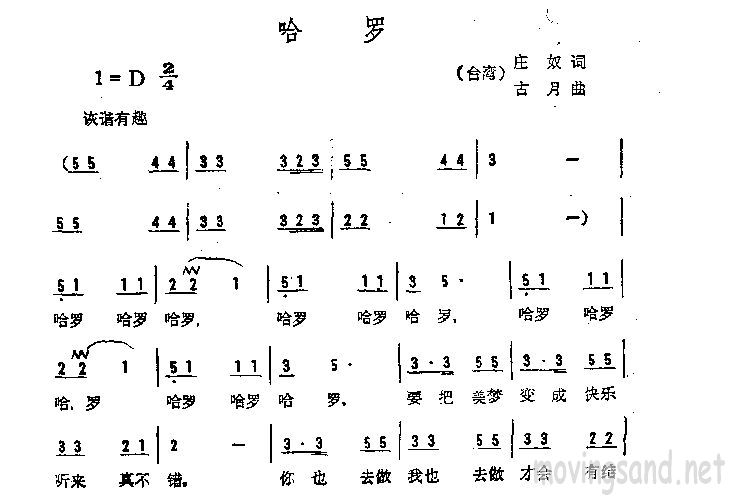 哈 罗
1=D 2/4
(台湾) 庄 奴 词
古 月 曲
诙谐有趣
(55 44 | 33 323 | 55 44 | 3 — |
55 44 | 33 323 | 22 12 | 1 —) |
51 11 | 22 1 | 51 11 | 3 5· | 51 11 |
哈罗 哈罗 哈罗, 哈罗 哈罗 哈 罗, 哈罗 哈罗
22 1 | 51 11 | 3 5· | 3·3 55 | 3·3 55 |
哈, 罗 哈罗 哈罗 哈 罗, 要 把 美梦 变 成 快乐
33 21 | 2 — | 3·3 55 | 33 55 | 33 22 |
听来 真不 错。 你 也 去做 我也 去做 才会 有结
movingsand.net